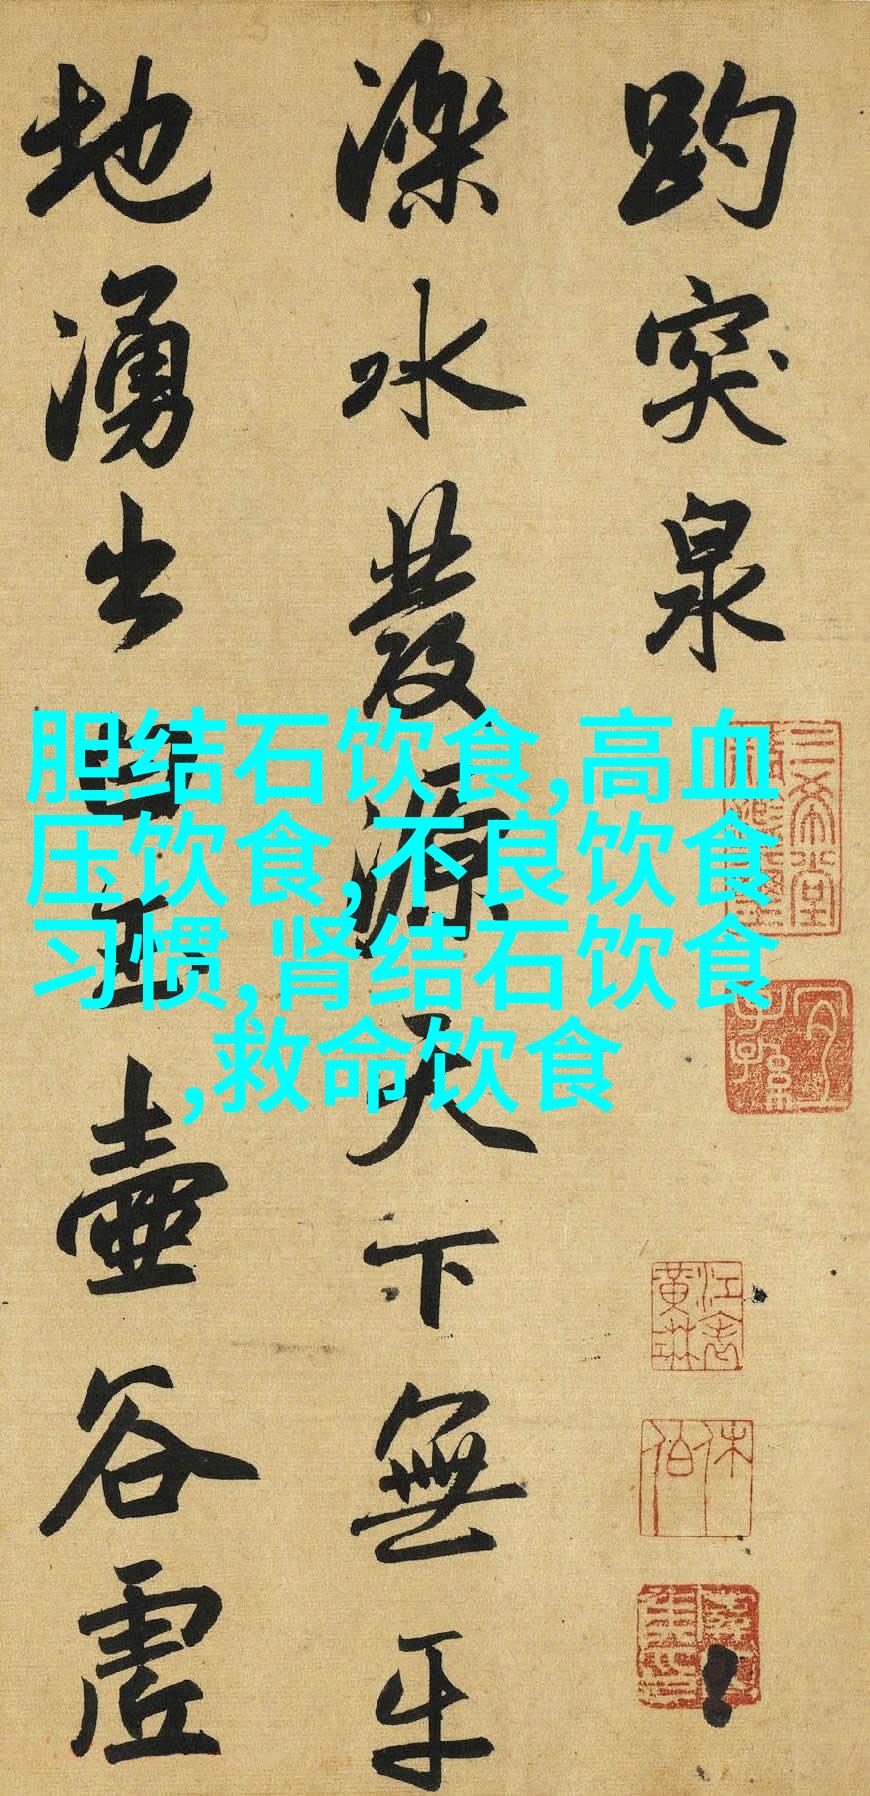 趵突泉
濼水發源天下無
平地湧出白玉壺
谷虛
胆结石饮食,高血
压饮食,不良饮食
习惯,肾结石饮食
,救命饮食